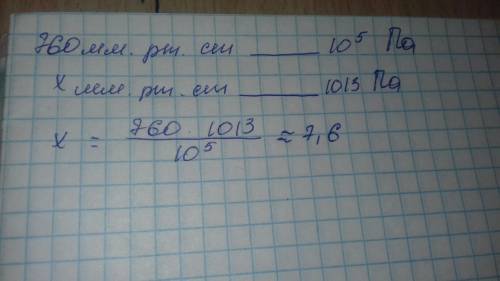 760 мм. рт. ст ______ 10⁵ Па
х мм. рт. ст ______ 1013 Па
х = 760 · 1013 / 10⁵ ≈ 7,6